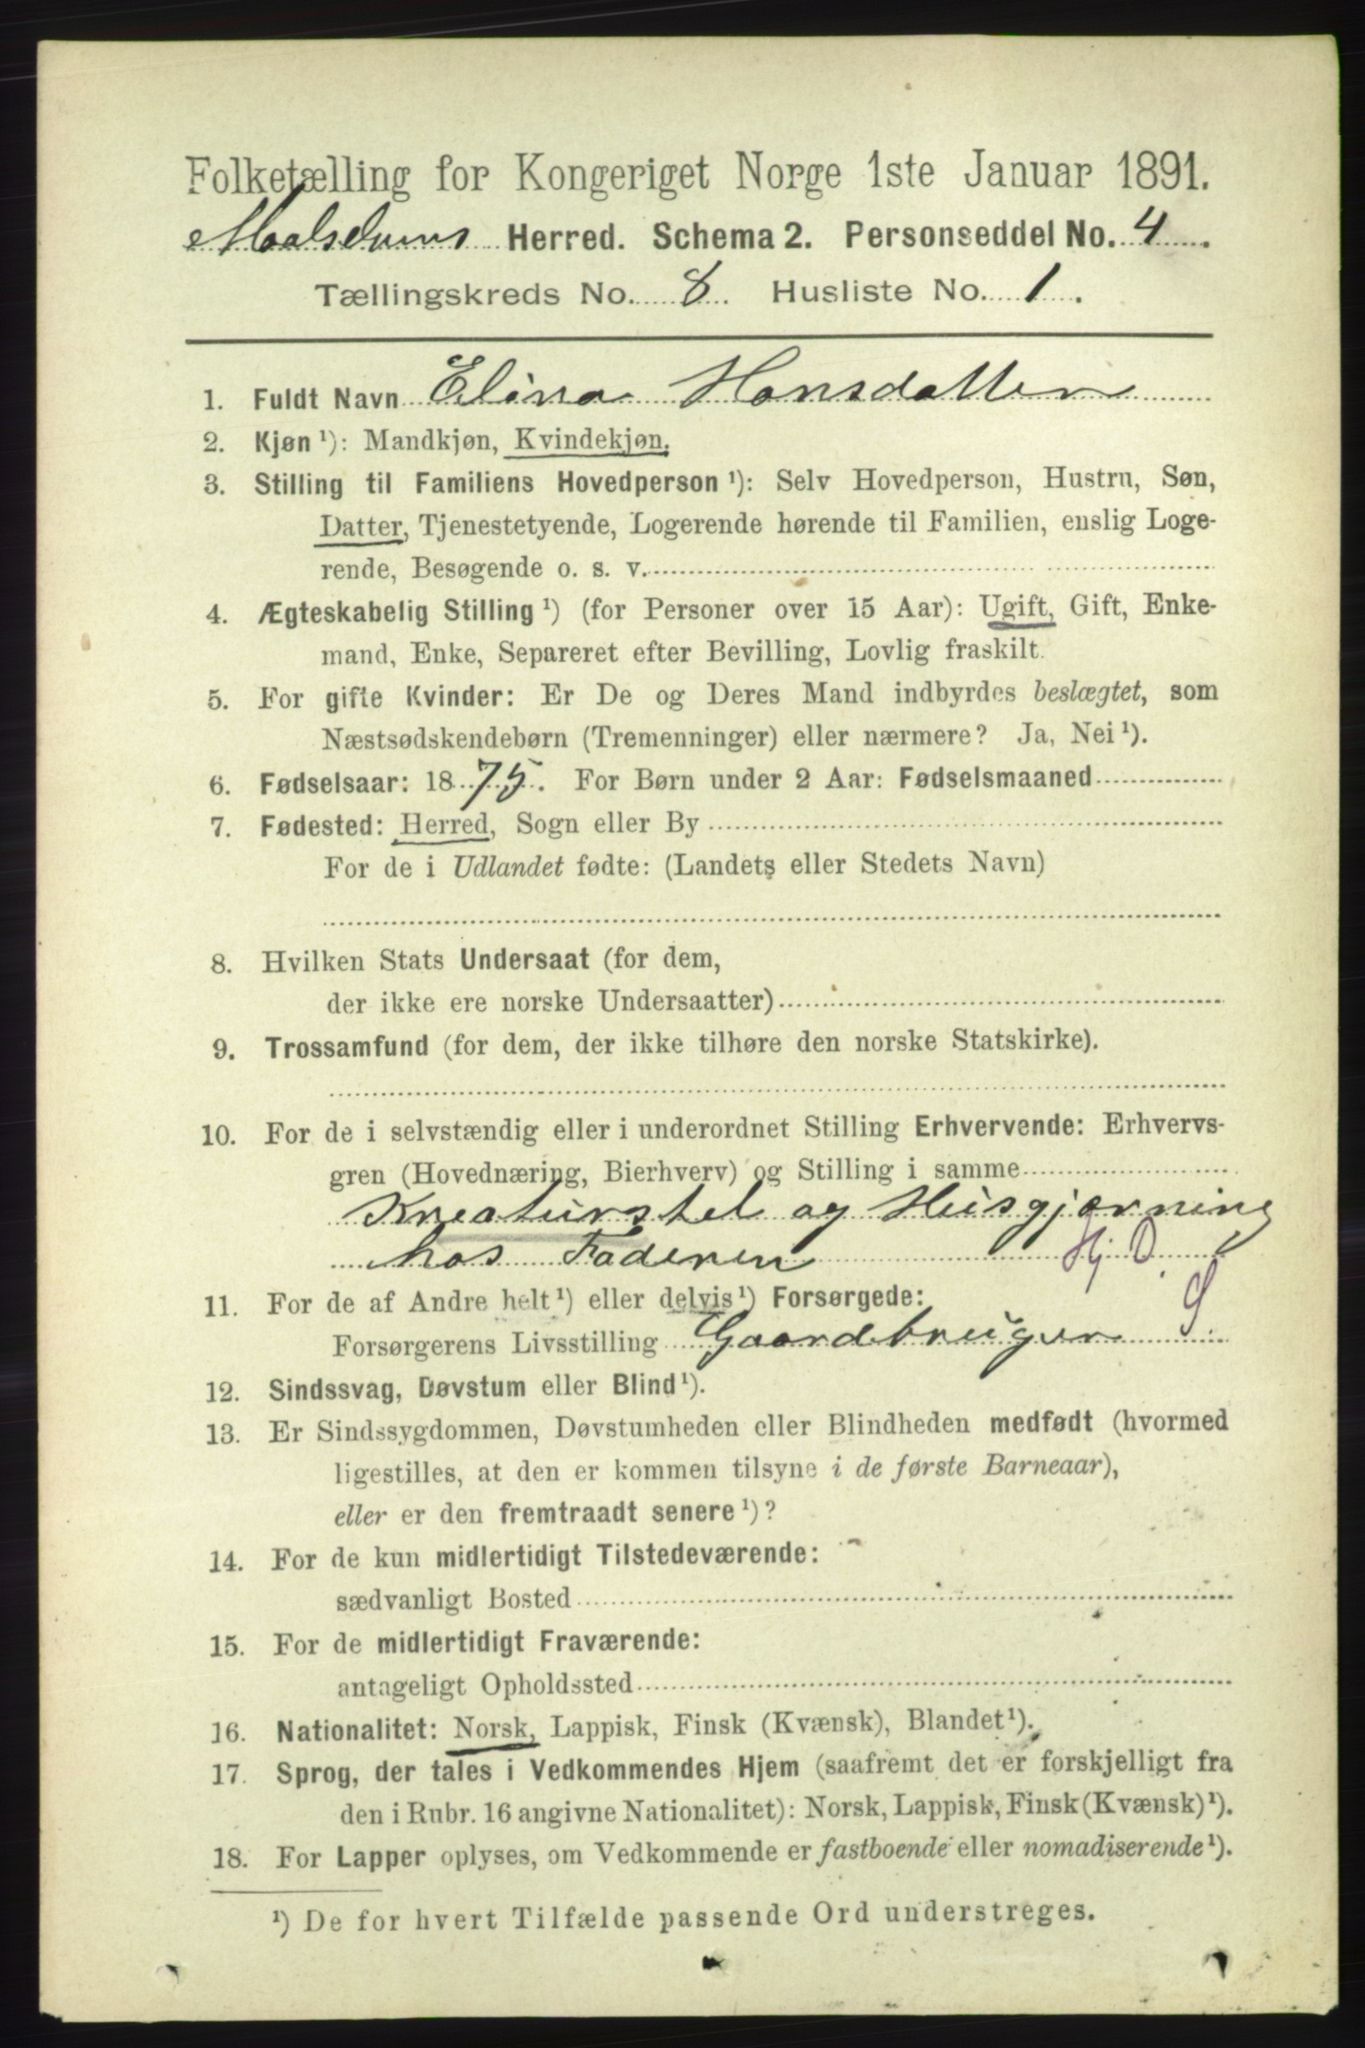 Folketælling for Kongeriget Norge 1ste Januar 1891.
Maalselvens Herred. Schema 2. Personseddel No. 4.
Tællingskreds No. 8. Husliste No. 1.
1. Fuldt Navn Elina Hansdatter
2. Kjøn ¹): Mandkjøn, Kvindekjøn.
3. Stilling til Familiens Hovedperson ¹): Selv Hovedperson, Hustru, Søn,
Datter, Tjenestetyende, Logerende hørende til Familien, enslig Loge-
rende, Besøgende o. s. v.
4. Ægteskabelig Stilling ¹) (for Personer over 15 Aar): Ugift, Gift, Enke-
mand, Enke, Separeret efter Bevilling, Lovlig fraskilt.
5. For gifte Kvinder: Er De og Deres Mand indbyrdes beslægtet, som
Næstsødskendebørn (Tremenninger) eller nærmere? Ja, Nei ¹).
6. Fødselsaar: 1875. For Børn under 2 Aar: Fødselsmaaned
7. Fødested: Herred, Sogn eller By
For de i Udlandet fødte: (Landets eller Stedets Navn)
8. Hvilken Stats Undersaat (for dem,
der ikke ere norske Undersaatter)
9. Trossamfund (for dem, der ikke tilhøre den norske Statskirke).
10. For de i selvstændig eller i underordnet Stilling Erhvervende: Erhvervs-
gren (Hovednæring, Bierhverv) og Stilling i samme
Kreaturstel og Husgjærning
hos Faderen Hj. D.
11. For de af Andre helt ¹) eller delvis ¹) Forsørgede:
Forsørgerens Livsstilling Gaardbruger S.
12. Sindssvag, Døvstum eller Blind ¹).
13. Er Sindssygdommen, Døvstumheden eller Blindheden medfødt (hvormed
ligestilles, at den er kommen tilsyne i de første Barneaar),
eller er den fremtraadt senere ¹)?
14. For de kun midlertidigt Tilstedeværende:
sædvanligt Bosted
15. For de midlertidigt Fraværende:
antageligt Opholdssted
16. Nationalitet: Norsk, Lappisk, Finsk (Kvænsk), Blandet ¹).
17. Sprog, der tales i Vedkommendes Hjem (saafremt det er forskjelligt fra
den i Rubr. 16 angivne Nationalitet): Norsk, Lappisk, Finsk (Kvænsk) ¹).
18. For Lapper oplyses, om Vedkommende er fastboende eller nomadiserende ¹).
¹) De for hvert Tilfælde passende Ord understreges.